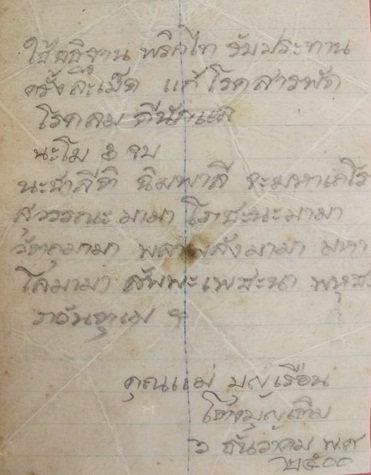 ใช้อธิฐาน พริกไท รับประทาน
ครั้งละเม็ด แก้โรคสารพัด
โรคลม ดีนักแล
นะโม ๓ จบ
นะชาลีติ ฉิมพาลี จะมหาเถโร
สุวรรณะมามา โภชะนะมามา
วัตถุมามา พลา มามา มหา
โลมามา สัพพะเพชะนา พหุชะ
ภวันตุเม ฯ
คุณแม่ บุญเรือน
โตงบุญเติม
ธันวาคม พ.ศ
๒๕๐๐